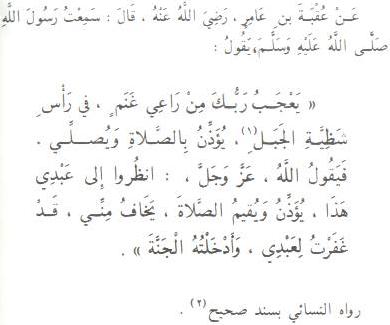 عَنْ عُقْبَةَ بنِ عَامِرٍ ، رَضِيَ اللَّهُ عَنْهُ ، قَالَ : سَمِعْتُ رَسُولَ اللَّهِ
صَلَّى اللَّهُ عَلَيْهِ وَسَلَّمَ يَقُولُ :
« يَعْجَبُ رَبُّكَ مِنْ رَاعِي غَنَمٍ ، في رَأْسِ
شَظِيَّةِ الجَبَلِ(١) ، يُؤَذِّنُ بِالصَّلاةِ وَيُصَلِّي .
فَيَقُولُ اللَّهُ ، عَزَّ وَجَلَّ ، : انظُرُوا إلى عَبْدِي
هَذَا ، يُؤَذِّنُ وَيُقِيمُ الصَّلاةَ ، يَخَافُ مِنِّي ، قَدْ
غَفَرْتُ لِعَبْدِي ، وَأَدْخَلْتُهُ الْجَنَّةَ » .
رواه النسائي بسند صحيح(٢) .